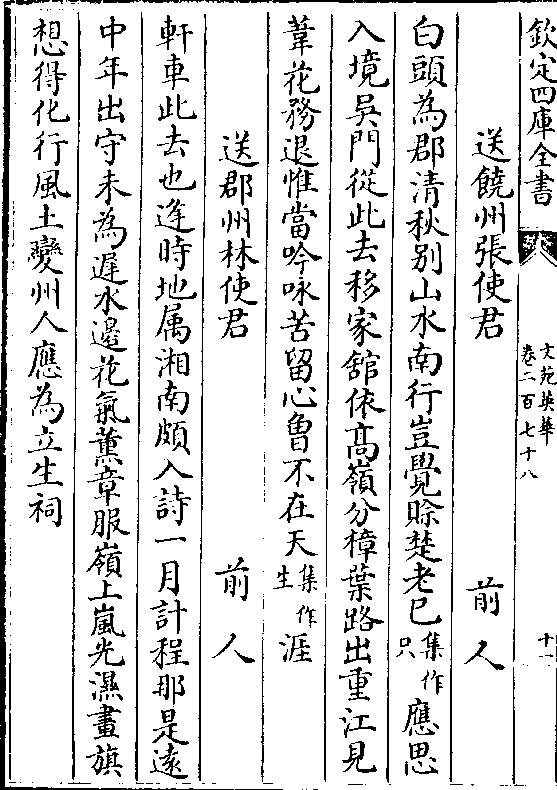 欽定四庫全書
文苑英華
卷二百七十八
十一
送饒州張使君
前人
白頭為郡清秋别山水南行豈覺賒楚老巳集作只應思
入境吳門從此去移家舘依髙嶺分樟葉路出重江見
葦花務退惟當吟咏苦留心曾不在天集作生涯
送郡州林使君
前人
軒車此去也逄時地属湘南頗入詩一月計程那是逺
中年出守未為遲水邉花氣薰章服嶺上嵐光濕畫旗
想得化行風土變州人應為立生祠